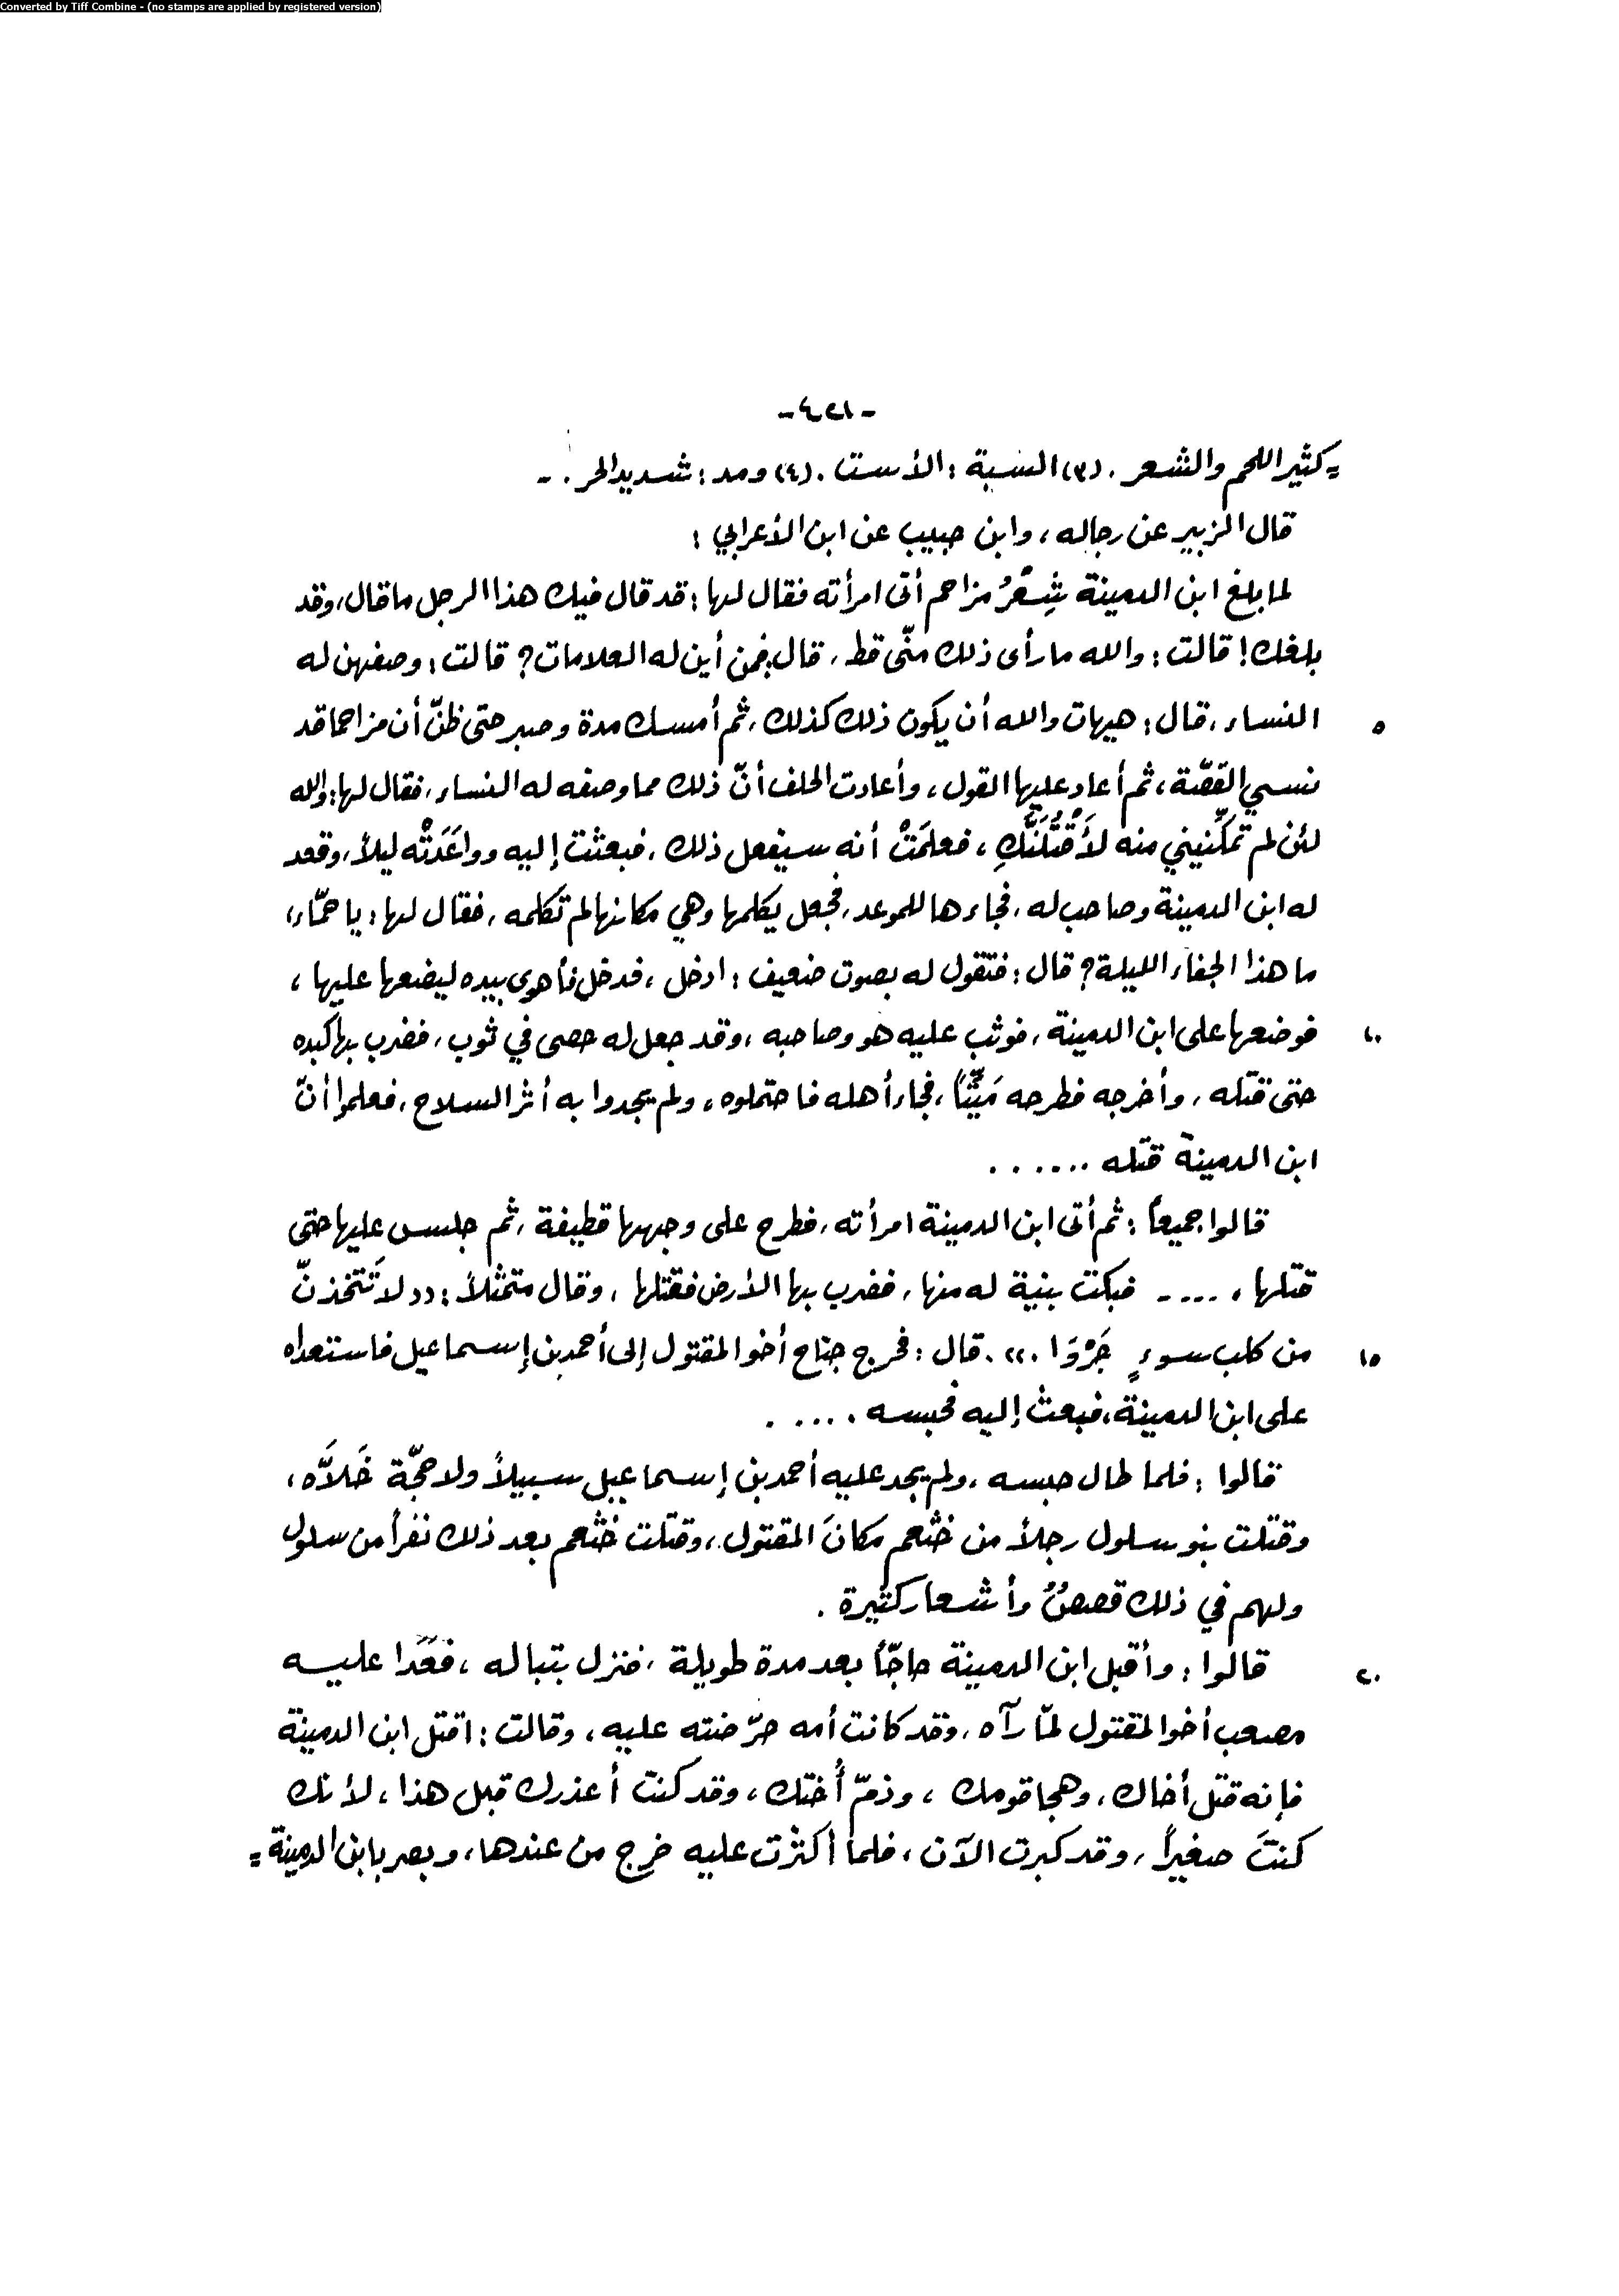 Converted by Tiff Combine - (no stamps are applied by registered version)
-٤٢١-
= كثير اللحم والشعر . (٣) السبة : الأست . (٤) ومد : شديد الحر . -
قال الزبير عن رجاله ، وابن حبيب عن ابن الأعرابي :
لما بلغ ابن الدمينة شِعْرُ مزاحم أتى امرأته فقال لها : قد قال فيك هذا الرجل ما قال ، وقد
بلغك ! قالت : والله ما رأى ذلك منّي قط ، قال : فمن أين له العلامات ؟ قالت : وصفهن له
النساء ، قال : هيهات والله أن يكون ذلك كذلك ، ثم أمسك مدة وصبر حتى ظنّ أن مزاحما قد ٥
نسي القصّة ، ثم أعاد عليها القول ، وأعادت الحلف أنّ ذلك مما وصفه له النساء ، فقال لها : والله
لئن لم تمكّنيني منه لأَقْتُلَنَّكِ ، فعلمَتْ أنه سيفعل ذلك ، فبعثت إليه وواعَدَتْه ليلاً ، وقعد
له ابن الدمينة وصاحب له ، فجاءها للموعد ، فجعل يكلمها وهي مكانها لم تكلمه ، فقال لها : يا حمّاء ،
ما هذا الجفاء الليلة ؟ قال : فتقول له بصوت ضعيف : ادخل ، فدخل فأهوى بيده ليضعها عليها ،
فوضعها على ابن الدمينة ، فوثب عليه هو وصاحبه ، وقد جعل له حصى في ثوب ، فضرب بها كبده ١٠
حتى قتله ، وأخرجه فطرحه مَيِّتاً ، فجاء أهله فاحتملوه ، ولم يجدوا به أثر السلاح ، فعلموا أنّ
ابن الدمينة قتله ......
قالوا جميعاً : ثم أتى ابن الدمينة امرأته ، فطرح على وجهها قطيفة ، ثم جلس عليها حتى
قتلها ، .... - فبكت بنية له منها ، فضرب بها الأرض فقتلها ، وقال متمثلاً : (( لا تَتخذنّ
من كلب سوءٍ جَرْوَا . )) . قال : فخرج جناح أخو المقتول إلى أحمد بن إسماعيل فاستعداه ١٥
على ابن الدمينة ، فبعث إليه فحبسه .....
قالوا : فلما طال حبسه ، ولم يجد عليه أحمد بن إسماعيل سبيلاً ولا حجّة خَلاَّه ،
وقتلت بنو سلول رجلاً من خثعم مكانَ المقتول ، وقتلت خثعم بعد ذلك نفراً من سلول
ولهم في ذلك قصصٌ وأشعار كثيرة .
قالوا : وأقبل ابن الدمينة حاجّاً بعد مدة طويلة ، فنزل بتباله ، فعَدَا عليه ٢٠
مصعب أخو المقتول لمّا رآه ، وقد كانت أمه حرّضته عليه ، وقالت : اقتل ابن الدمينة
فإنه قتل أخاك ، وهجا قومك ، وذمّ أُختك ، وقد كنت أعذرك قبل هذا ، لأنك
كنتَ صغيراً ، وقد كبرت الآن ، فلما أكثرت عليه خرج من عندها ، وبصر بابن الدمينة =